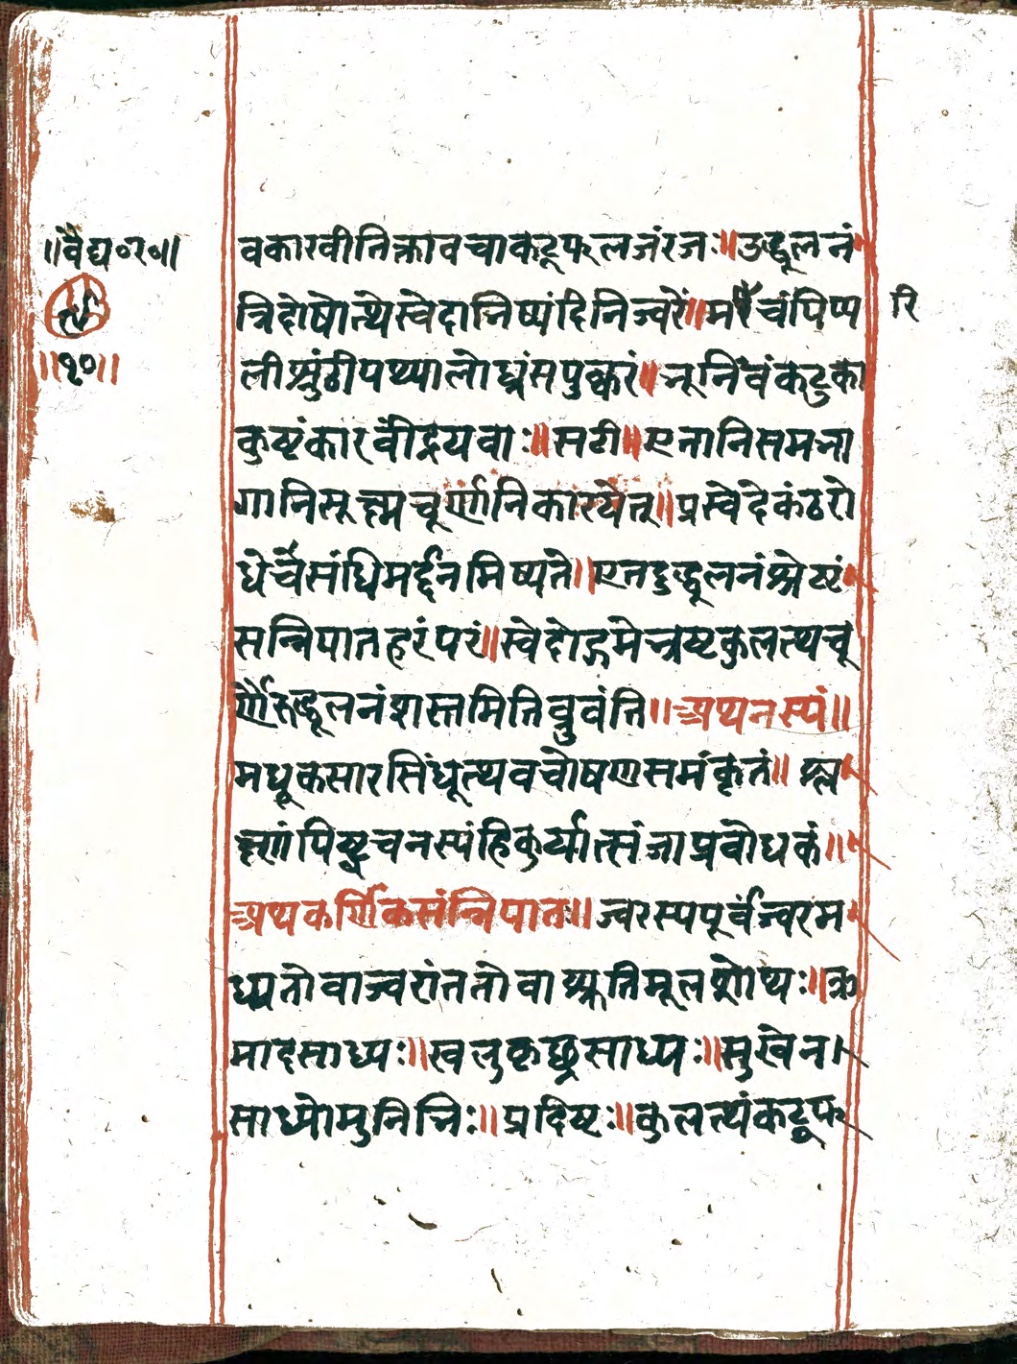 ॥वैद्य०र०॥
॥१०॥
वकारवीतिक्तावचाकटूफलजंरजः॥उद्धूलनं
त्रिदोषोत्थेस्वेदानिष्यंदिनिज्वरे॥मरिचंपिप्प
रि
लीश्रुंठीपथ्यालोध्रंसपुष्करं॥भूनिंबंकटुका
कुष्टंकारवींद्रयवाः॥सटी॥एतानिसमभा
गानिसूक्ष्मचूर्णानिकारयेत्॥प्रस्वेदेकंठरो
धेचसंधिमर्द्दनमिष्यते॥एतदुद्धूलनंश्रेष्टं
सन्निपातहरंपरं॥स्वेदोद्गमेभ्रष्टकुलत्थचू
र्णैरुद्धूलनंशस्तमितिब्रुवंति॥अथनस्यं॥
मधूकसारसिंधूत्थवचोषणसमंकृतं॥श्ल
क्ष्णंपिष्ट्वाचनस्यंहिकुर्यात्संज्ञाप्रबोधकं॥
अथकर्णिकसंन्निपातः॥ज्वरस्यपूर्वंज्वरम
ध्यतोवाज्वरांततोवाश्रुतिमूलशोथः॥क्र
मादसाध्यः॥खलुकृछ्रसाध्यः॥सुखेन
साध्योमुनिभिः॥प्रदिष्टः॥कुलत्थंकटूफ